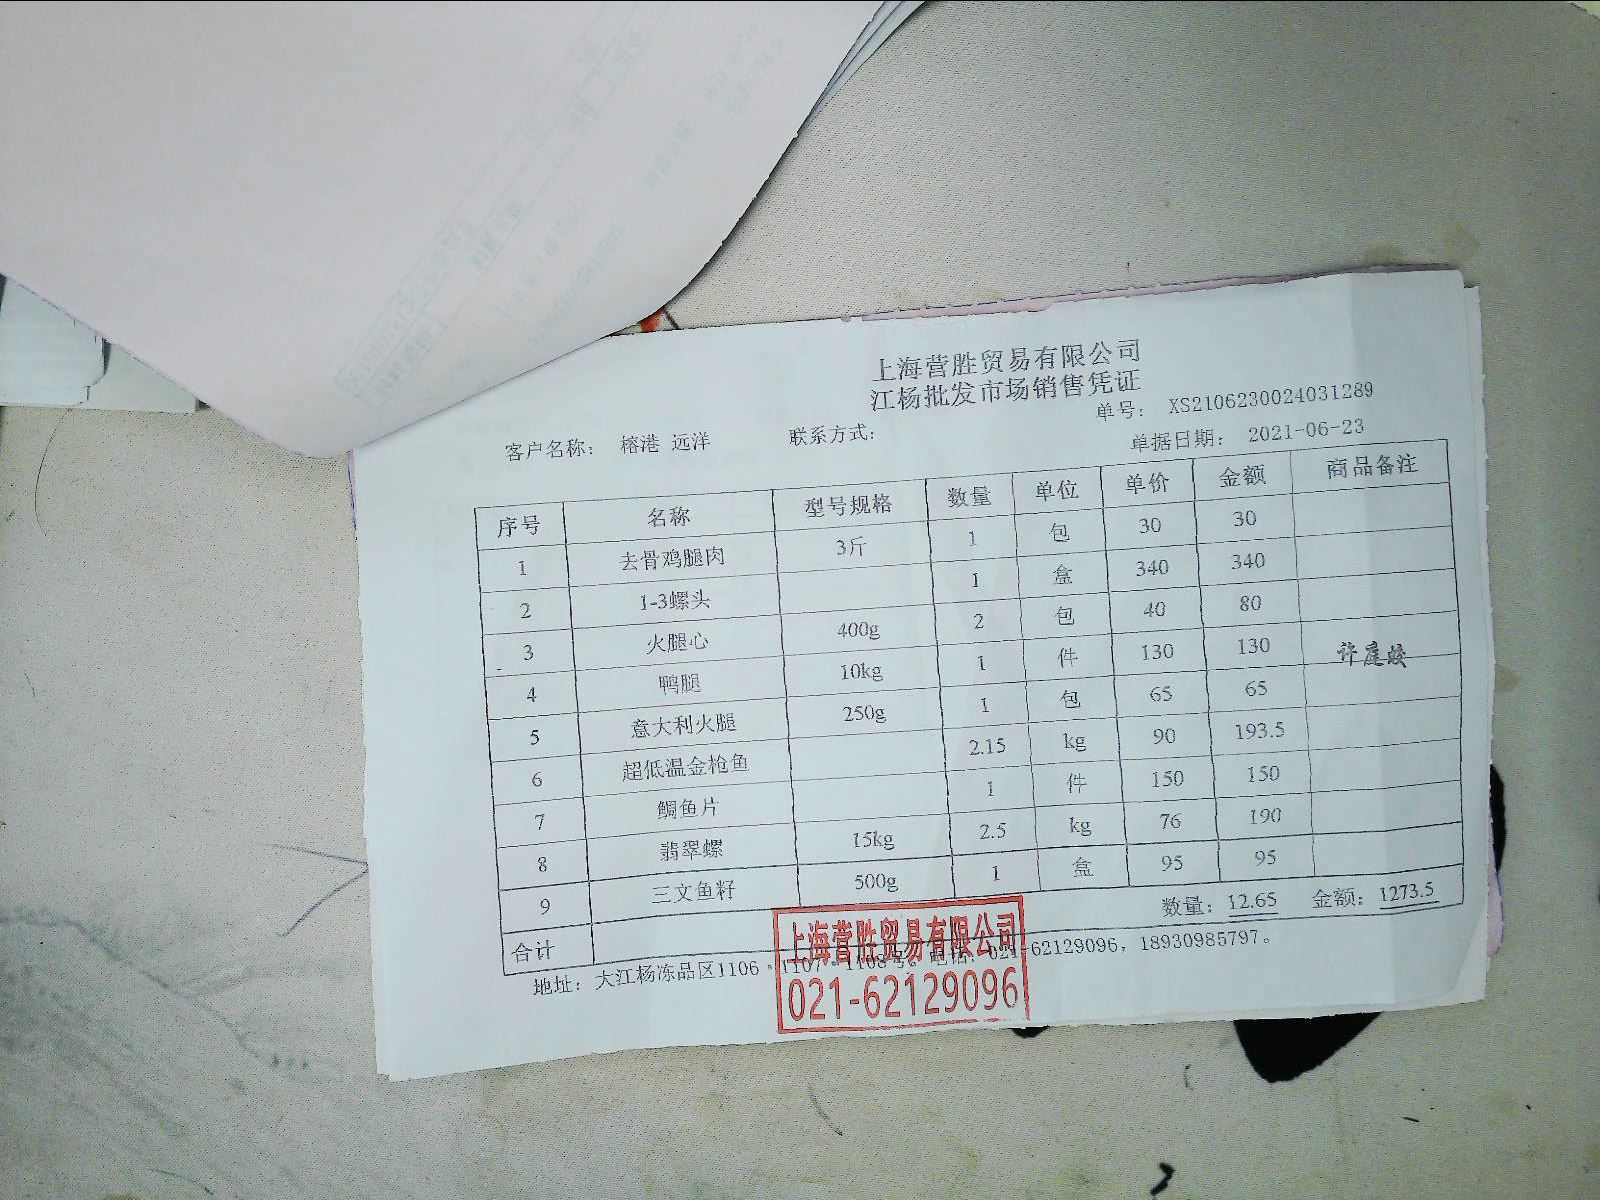 上海营胜贸易有限公司
江杨批发市场销售凭证
单号： XS2106230024031289
客户名称： 榕港 远洋 联系方式： 单据日期： 2021-06-23
序号 名称 型号规格 数量 单位 单价 金额 商品备注
1 去骨鸡腿肉 3斤 1 包 30 30
2 1-3螺头 1 盒 340 340
3 火腿心 400g 2 包 40 80
4 鸭腿 10kg 1 件 130 130
5 意大利火腿 250g 1 包 65 65
6 超低温金枪鱼 2.15 kg 90 193.5
7 鲷鱼片 1 件 150 150
8 翡翠螺 15kg 2.5 kg 76 190
9 三文鱼籽 500g 1 盒 95 95
合计 数量：12.65 金额：1273.5
地址：大江杨冻品区1106·1107·1108号。电话：021-62129096，18930985797。
上海营胜贸易有限公司
021-62129096